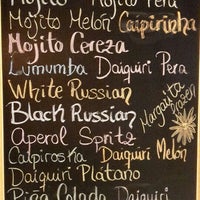 Mojito Mojito Pera
Mojito Melón Caipirinha
Mojito Cereza
Lumumba Daiquiri Pera
White Russian
Black Russian
Margarita frozen
Aperol Spritz
Caipiroska Daiquiri Melón
Daiquiri Plátano
Piña Colada Daiquiri